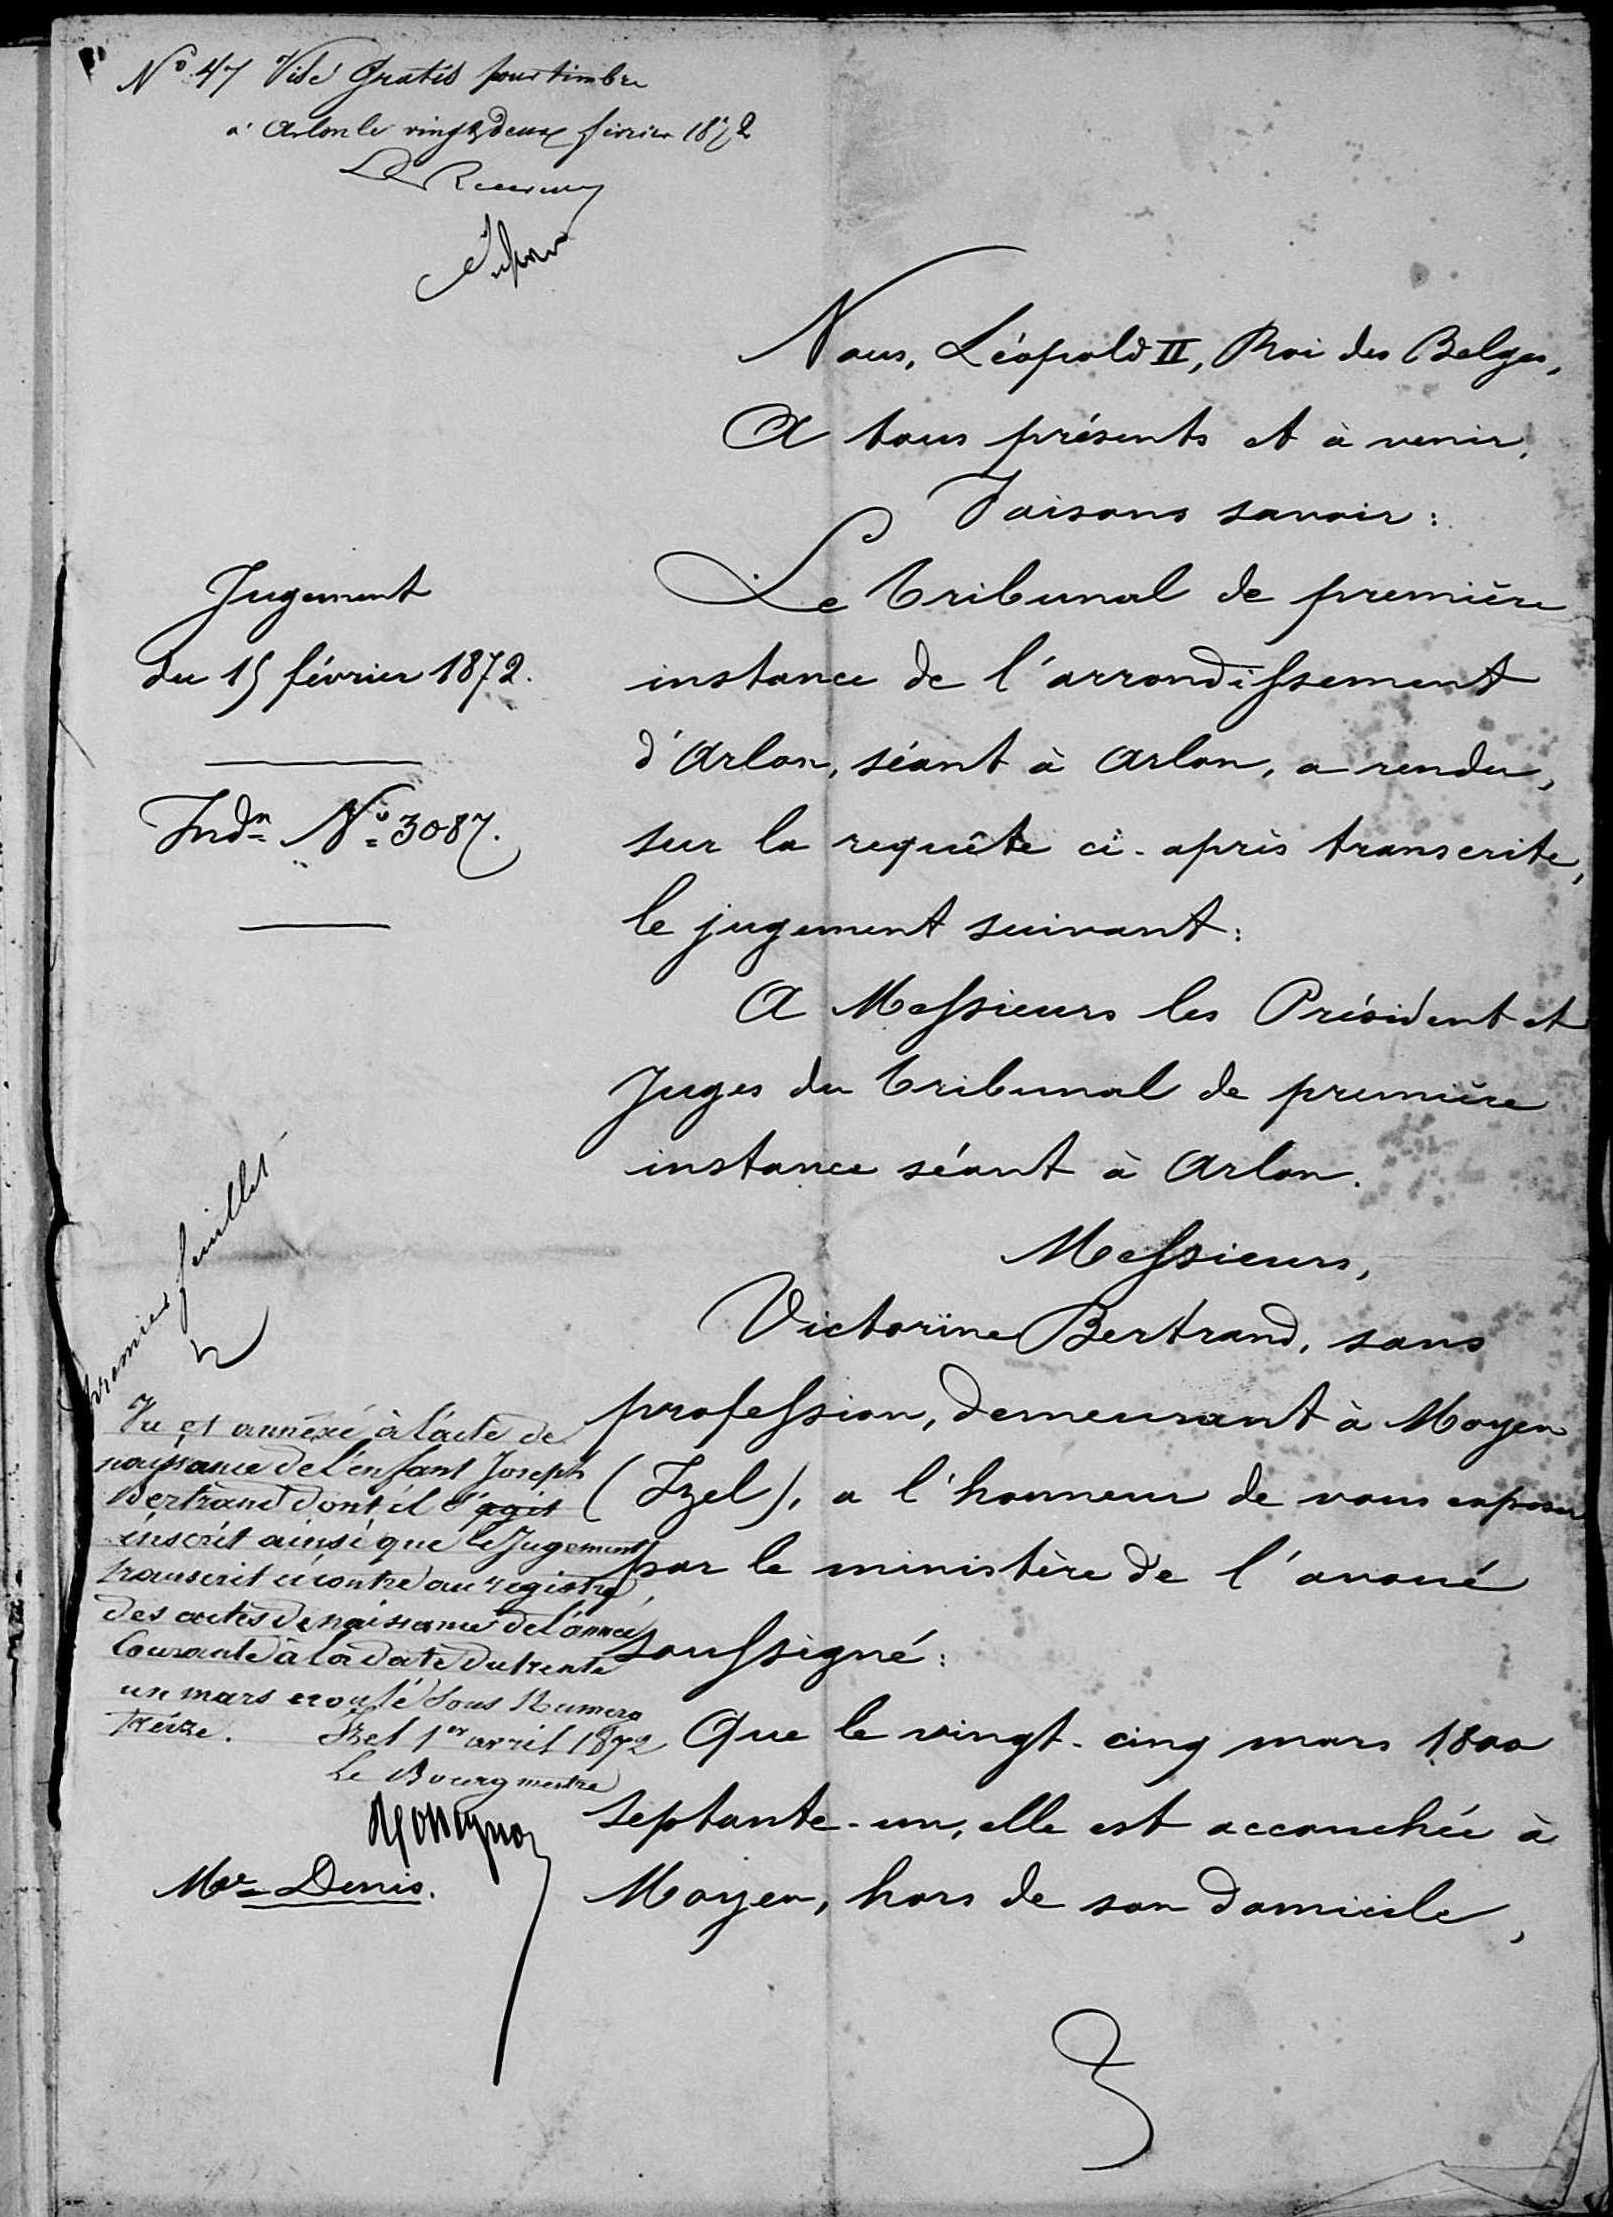 No 47 Visé Gratis pour timbre
à Arlon le vingt deux février 1872
Le Receveur
Nous, Léopold II, Roi des Belges,
A tous présents et à venir,
Faisons savoir :
Jugement
du 15 février 1872.
Indn No 3087.
Le Tribunal de première
instance de l'arrondissement
d'Arlon, séant à Arlon, a rendu,
sur la requête ci-après transcrite,
le jugement suivant :
A Messieurs les Président et
Juges du Tribunal de première
instance séant à Arlon.
Messieurs,
Victorine Bertrand, sans
profession, demeurant à Moyen
(Izel), a l'honneur de vous exposer
par le ministère de l'avoué
soussigné :
Que le vingt-cinq mars 1800
septante-un, elle est accouchée à
Moyen, hors de son domicile,
premier feuillet
Vu et annexé à l'acte de
naissance de l'enfant Joseph
Bertrand dont il s'agit
inscrit ainsi que le Jugement
transcrit ci contre au registre
des actes de naissance de l'année
Courante à la date du trente
un mars ecoulé sous Numero
treize. Izel 1er avril 1872
Le Bourgmestre
Me Denis.